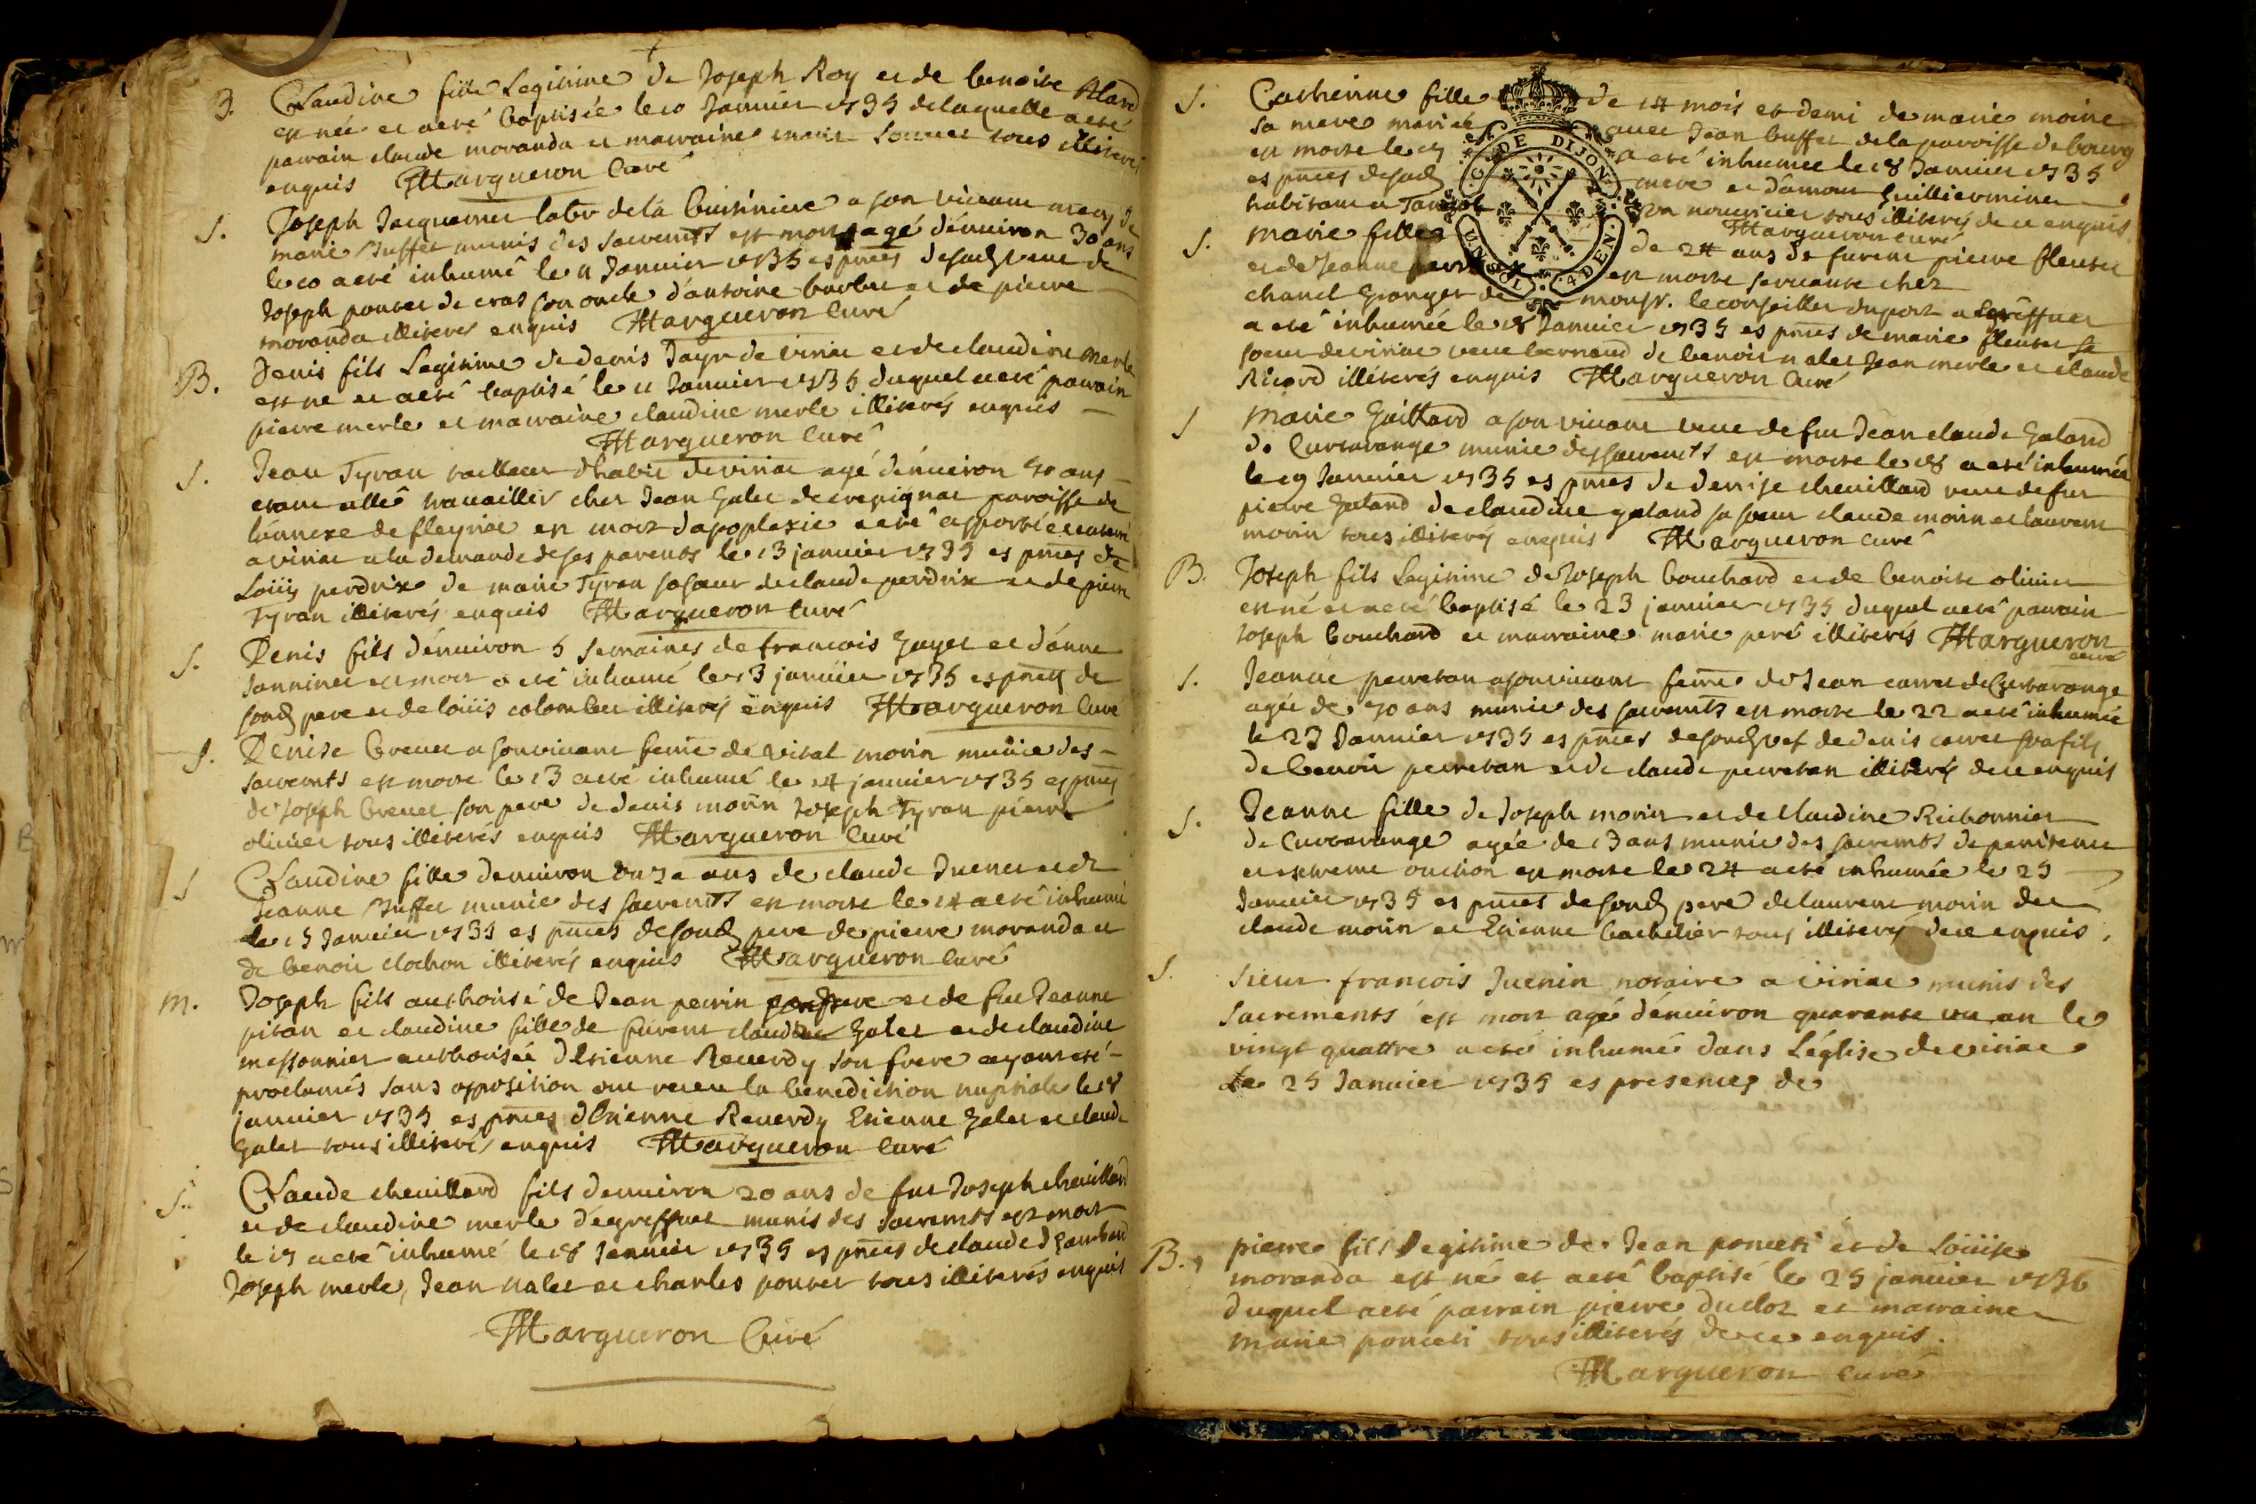 B. Claudine fille Legitime de Joseph Roy et de benoite
est née et a eté baptisée le 10 Janvier 1735 de laquelle a eté
parrain claude moranda et marraine marie tous illiterés
enquis Margueron Curé
S. Joseph Jacquemet labr de la buisiniere a son vivant mary de
marie Buffet munis des sacremts est mort agé d'environ 30 ans
le 10 a eté inhumé le 11 Janvier 1735 es pnces de
Joseph ponter de cras son oncle d'antoine et de pierre
moranda illiterés enquis Margueron Curé
B. Denis fils Legitime de denis Jayr de viriac et de claudine merle
est ne et a eté baptisé le 11 Janvier 1735 duquel a eté parrain
pierre merle et marraine claudine merle illiterés enquis
Margueron Curé
S. Jean Tyran tailleur d'habit de viriac agé d'environ 50 ans
etant allé travailler chez Jean Galet de crepignat paroisse de
l'annexe de fleyriac est mort d'apoplexie a eté apporté et enterré
a viriac a la demande de ses parents le 13 janvier 1735 es pnces de
Loüis perdrix de marie Tyran sa soeur de claude perdrix et de pierre
Tyran illiterés enquis Margueron Curé
S. Denis fils d'environ 5 semaines de francois Gayet et d'anne
est mort a eté inhumé le 13 janvier 1735 es pnces de
sond pere et de loüis colomber illiterés enquis Margueron Curé
S. Denise brevet a son vivant feme de vital morin munie des
sacremts est morte le 13 a eté inhumé le 14 janvier 1735 es pnces
de Joseph brevet son pere de denis morin Joseph Tyran pierre
olivier tous illiterés enquis Margueron Curé
S Claudine fille d'environ onze ans de claude Juenet et de
Jeanne Buffet munie des sacremts est morte le 14 a eté inhumé
le 15 Janvier 1735 es pnces de sond pere de pierre moranda et
de benoit clochon illiterés enquis Margueron Curé
M. Joseph fils authorisé de Jean perrin et de fue Jeanne
pitan et claudine fille de furent claude Galet et de claudine
messonnier authorisée d'Etienne Reverdy son frere ayant eté
proclamés sans opposition ont receu la benediction nuptiale le 18
janvier 1735 es pnces d'Etienne Reverdy Etienne Galet et claude
Galet tous illiterés enquis Margueron Curé
S. Claude chevillard fils d'environ 20 ans de fut Joseph chevillard
et de claudine merle d'egreffuel munis des sacremts est mort
le 17 a eté inhumé le 18 Janvier 1735 es pnces de claude
Joseph merle, Jean nalet et charles ponter tous illiterés enquis
Margueron Curé
S. Catherine fille de 14 mois et demi de marie moine
sa mere mariée avec Jean buffet de la paroisse de bourg
est morte le 17 a eté inhumée le 18 Janvier 1735
es pnces de sad mere et d'amour Guillierminet
habitant a nourricier tous illiterés de ce enquis
Margueron Curé
S. Marie fille de 24 ans de furent pierre fleuter
et de Jeanne est morte servante chez
chanel Granger de monsr. le conseiller duport a Egreffuel
a eté inhumée le 18 Janvier 1735 es pnces de marie fleuter sa
soeur de viriac veuve bernand de benoit nalet Jean merle et claude
Ricard illiterés enquis Margueron Curé
S Marie Gaillard a son vivant veuve de fut Jean claude Galand
de Curtarange munie des sacremts est morte le 18 a eté inhumée
le 19 Janvier 1735 es pnces de denise chevillard veuve de fut
pierre Galand de claudine galand sa soeur claude morin et laurent
morin tous illiterés enquis Margueron Curé
B. Joseph fils Legitime de Joseph bouchard et de benoite olivier
est né et a eté baptisé le 23 janvier 1735 duquel a eté parrain
Joseph bouchard et marraine marie peré illiterés Margueron
curé
S. Jeanne perretan a son vivant feme de Jean carret de Curtarange
agée de 50 ans munie des sacremts est morte le 22 a eté inhumée
le 23 Janvier 1735 es pnces de sond vef de denis carret son fils
de benoit perretan et de claude perretan illiterés de ce enquis
S. Jeanne fille de Joseph morin et de claudine Richonnier
de Curtarange agée de 13 ans munie des sacremts de penitence
et extreme onction est morte le 24 a eté inhumée le 25
Janvier 1735 es pnces de sond pere de laurent morin de
claude morin et Etienne bachelier tous illiterés de ce enquis,
S. Sieur francois Juenin notaire a viriac munis des
sacrements est mort agé d'environ quarante un an le
vingt quattre a eté inhumé dans L'église de viriac
le 25 Janvier 1735 es presences de
B. pierre fils Legitime de Jean ponceti et de Loüise
moranda est né et a eté baptisé le 25 janvier 1735
duquel a eté parrain pierre duclos et marraine
marie ponceti tous illiterés de ce enquis.
Margueron curé
G. DE DIJON